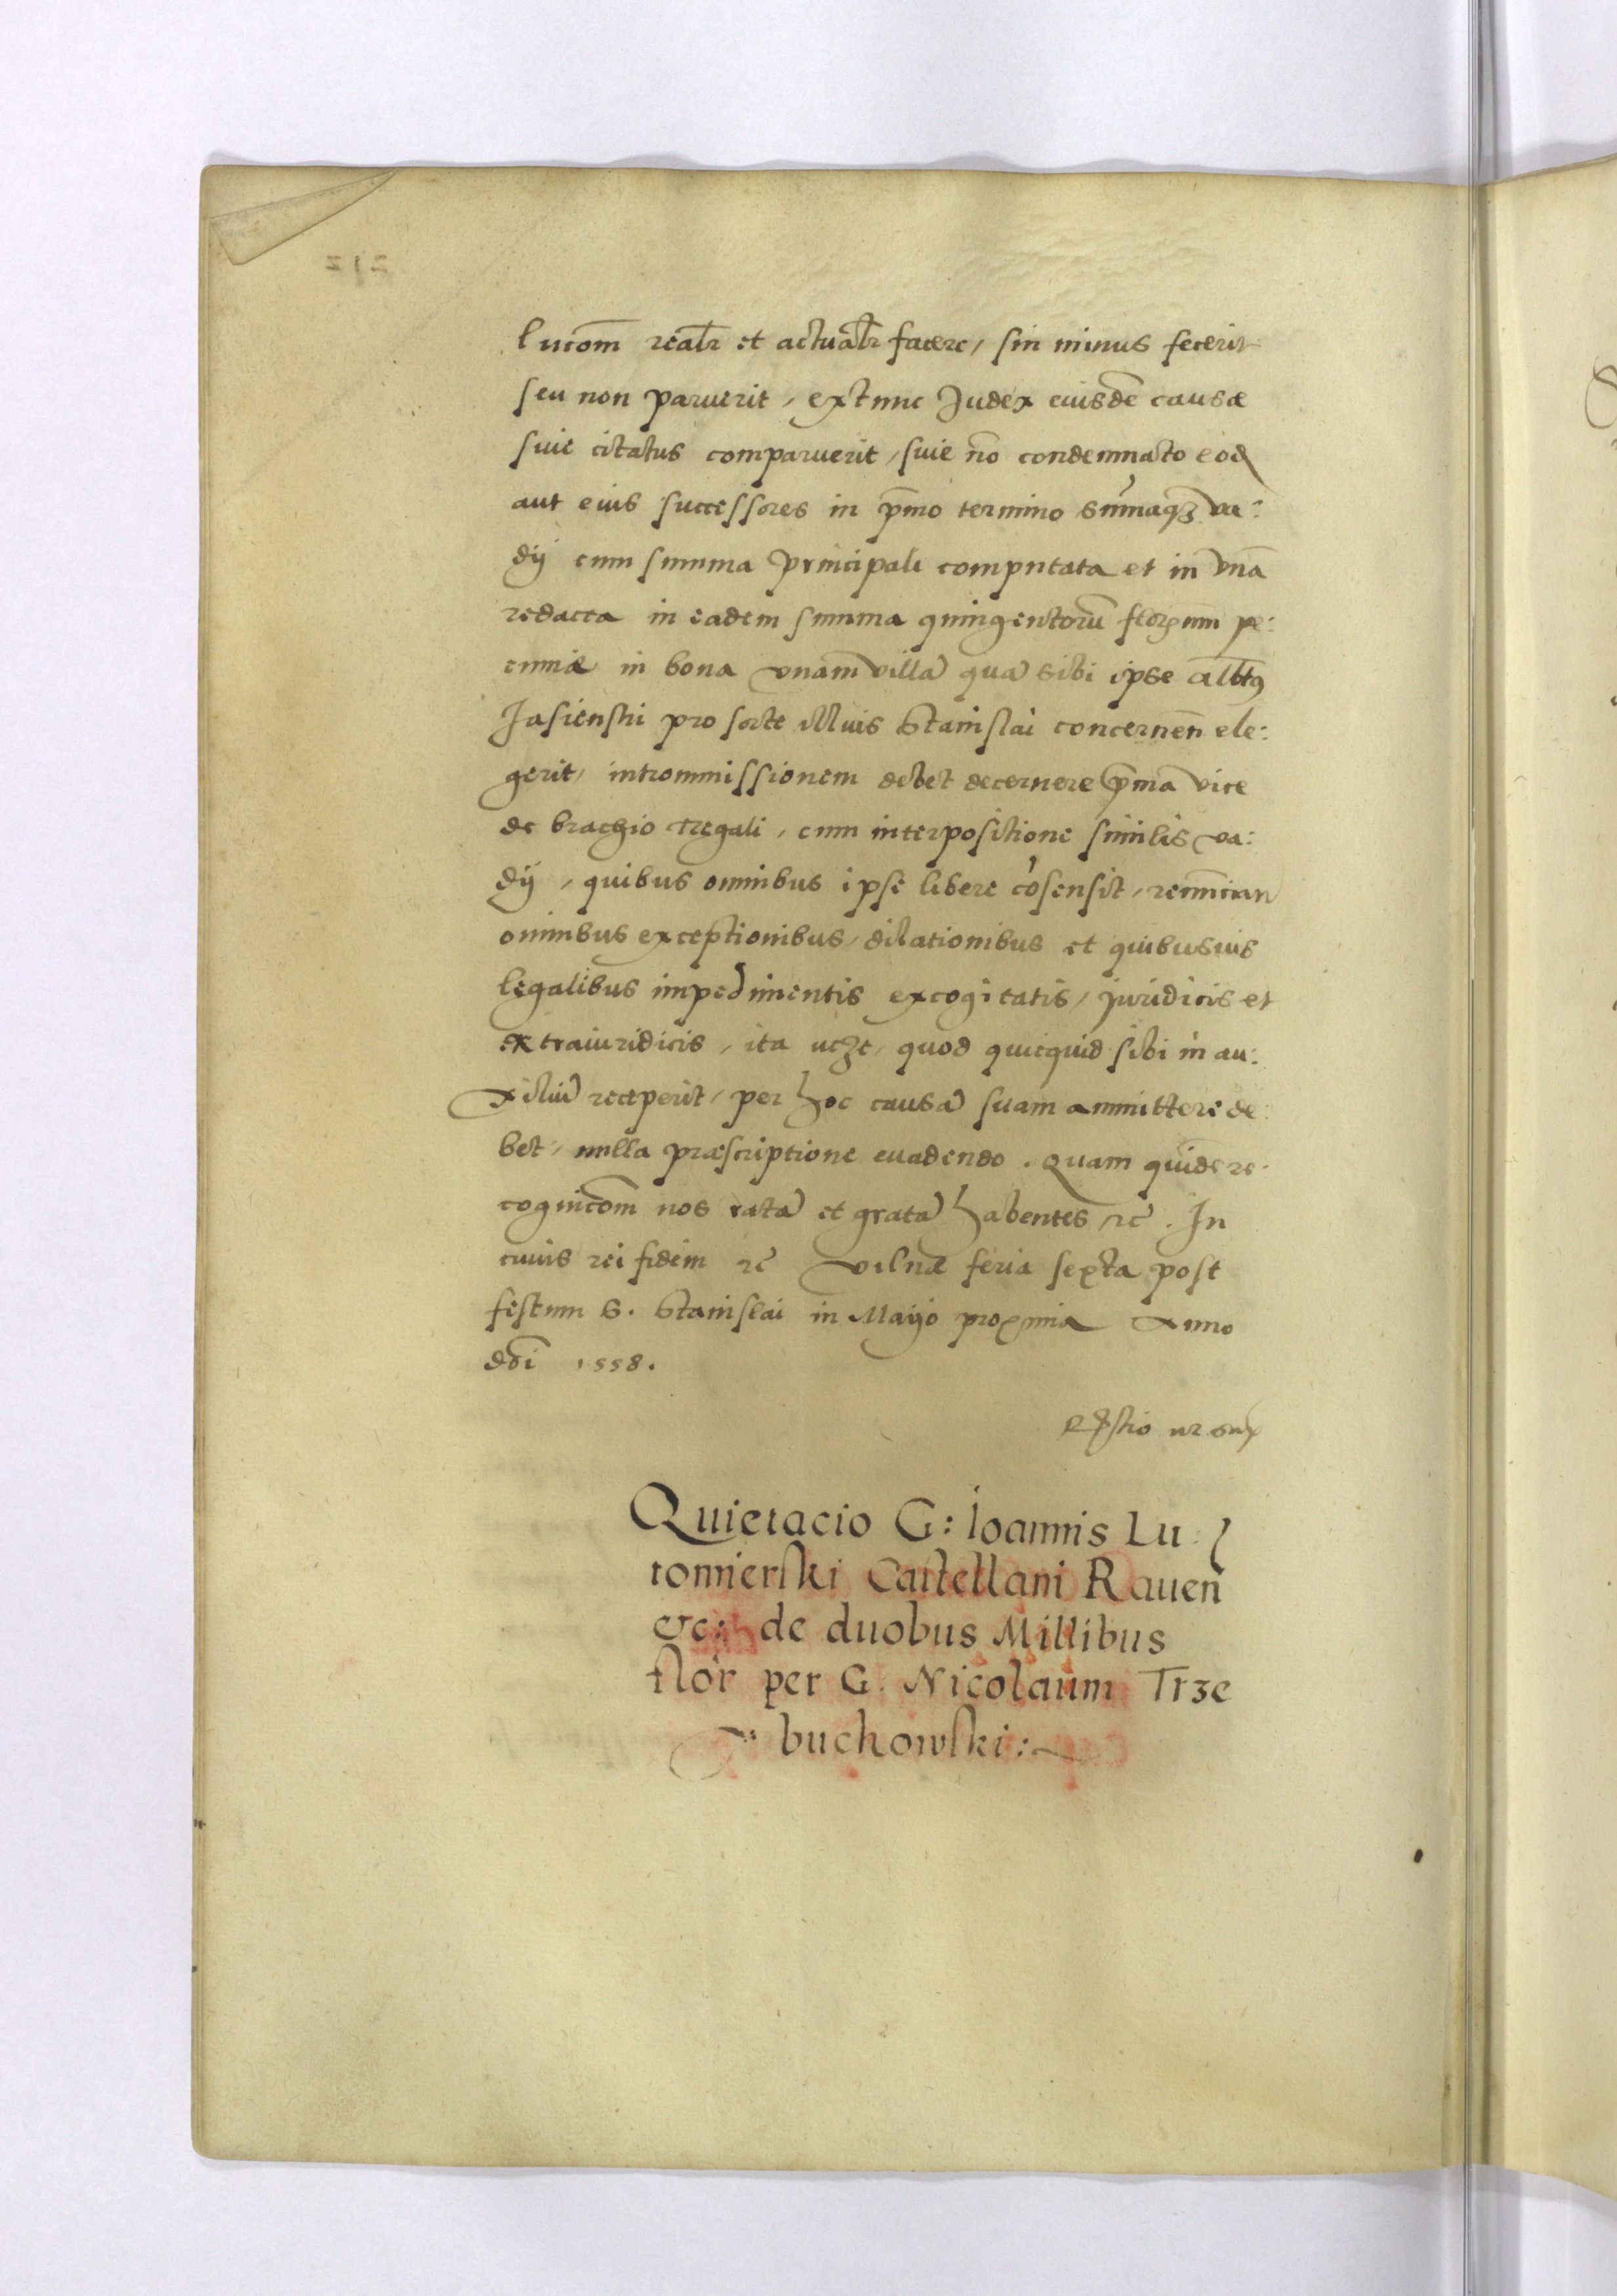 lucōm realr et actualr facere, sin minus fecerit
seu non paruerit, extunc Judex eiusdē causæ
siue citatus comparuerit, siue nō condemnato eod
aut eius successores in pmo termino summaqz va:
dij cum summa principali computata et in vnā
redacta in eadem summa quingentorū florenum pe:
cuniæ in bona vnam villā quā sibi ipse Albtus
Jasienski pro sorte illius Stanislai concernēn ele:
gerit, intrommissionem debet decernere pma vice
de brachio regali, cum interpositione similis va:
dij, quibus omnibus ipse libere cōsensit, renuncian
omnibus exceptionibus, dilationibus et quibusuis
legalibus impedimentis excogitatis, juridicis et
extraiuridicis, ita vczt, quod quicquid sibi in au:
xiliū receperit, per hoc causā suam ammittere de:
bet, nulla præscriptione euadendo. Quam quidē re:
cognicōm nos ratā et gratā habentes, rc̄. In
cuius rei fidem rc̄ Vilnæ feria sexta post
festum S. Stanislai in Mayo proxima Anno
dn̄i 1558.
Quietacio G: Ioannis Lu:
tomierski Castellani Rauen̄
etc: de duobus Millibus
flor per G. Nicolaum Trze
buchowski: